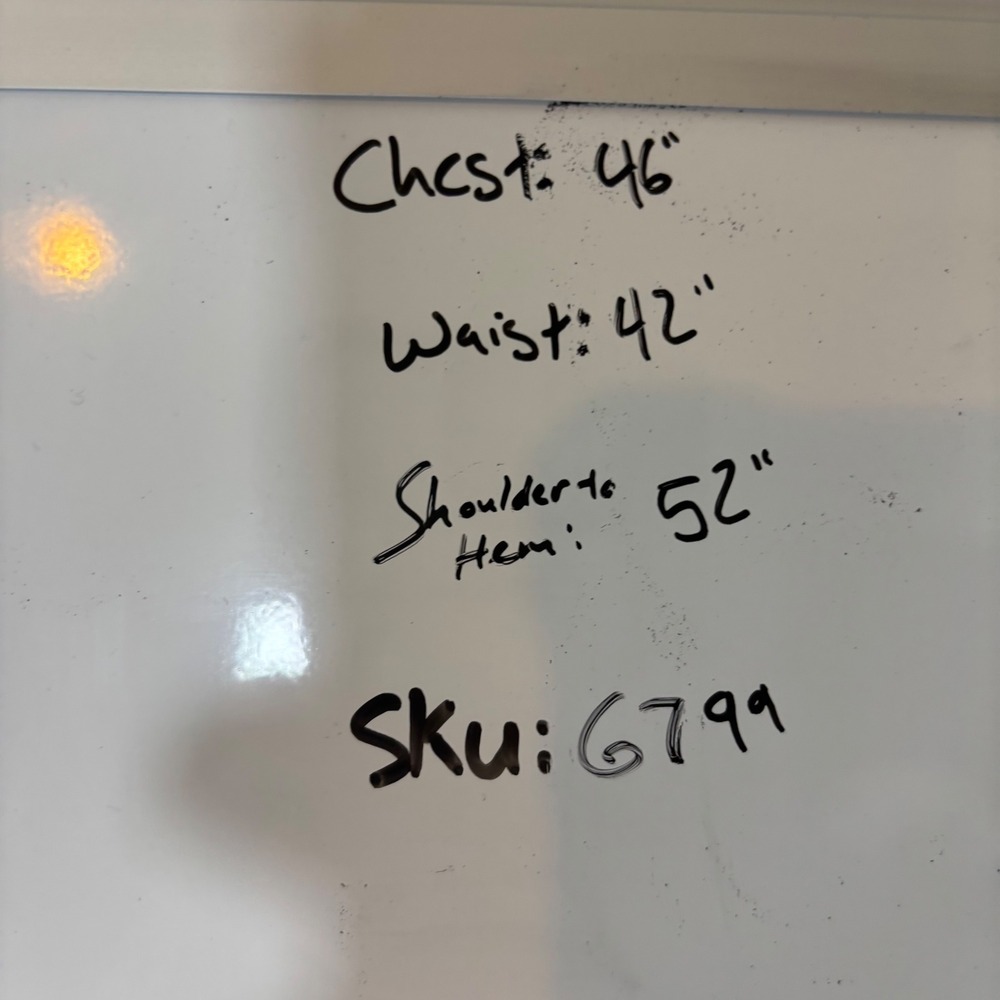 Chest: 46"
Waist: 42"
Shoulder to 52"
Hem:
SKU: 6799